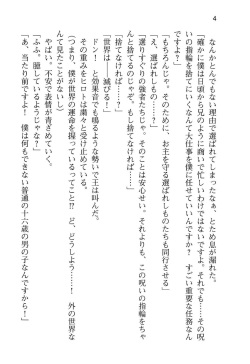 4
なんかとんでもない理由で選ばれてしまったなぁ、とため息が漏れた。
「確かに僕は日頃から兄のように商いで忙しいわけではないですけど。それでも……その呪
いの指輪を捨てにいくなんて大仕事を僕に任せていいんですか？　すごい重要な任務なん
ですよね？」
「もちろんじゃ。そのために、お主を守る選ばれしものたちも同行させる」
「え、選ばれしもの……？」
「選りすぐりの強者たちじゃ。そのことは安心せい。それよりも、この呪いの指輪をちゃ
んと捨てなければ……」
「捨てなければ……？」
「世界は――、滅びる！」
ドン！　と効果音でも鳴るような勢いで王は叫んだ。
その重みを、僕は粛々と受け止めている。
「そんな……！　つまり、僕が世界の運命を握っているって……！　外の世界な
んて見たことないのに……！　ど、どうしよう……！」
やばい、不安で表情が青ざめていく。
「ふふ、臆しているようじゃな？」
「あ、当たり前ですよ！　僕は何もできない普通の十六歳の男の子なんですから！」